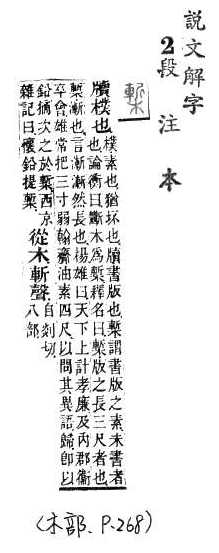 說文解字
2段注本
槧
牘樸也
樸素也猶坏也牘書版也槧謂書版之素未書者
也論衡曰斷木爲槧釋名曰槧版之長三尺者也
槧漸也言漸漸然長也楊雄曰天下上計孝廉及內郡衞
卒會雄常把三寸弱翰齎油素四尺以問其異語歸卽以
鉛摘次之於槧西京
雜記曰懷鉛提槧
從木斬聲
自剡切
八部
(木部、P.268)